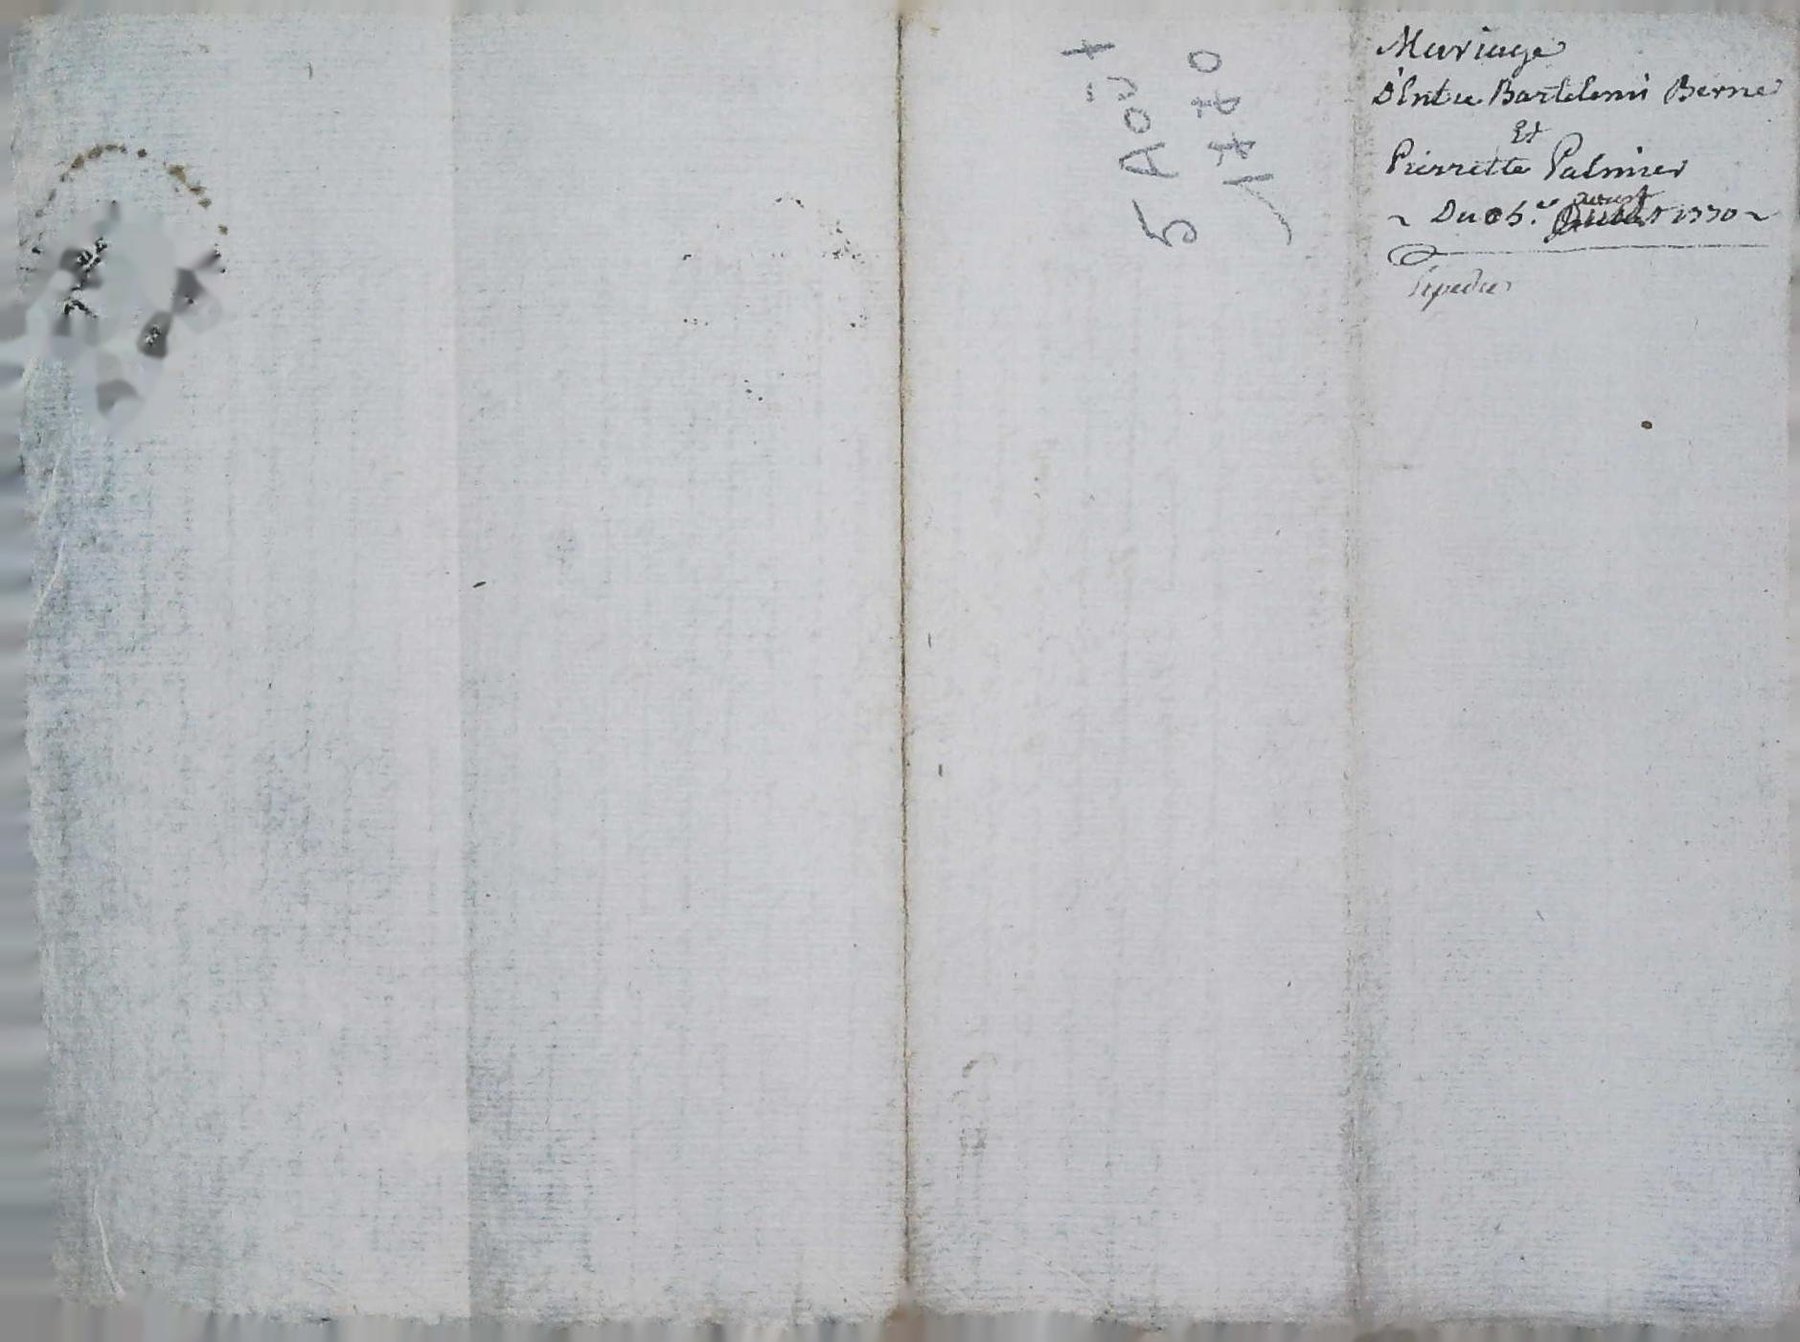 5 Août
1770
Mariage
D'Entre Bartelemi Berne
Et
Pierrette Palmier
~ Du 5.e aoust 1770 ~
Expedié